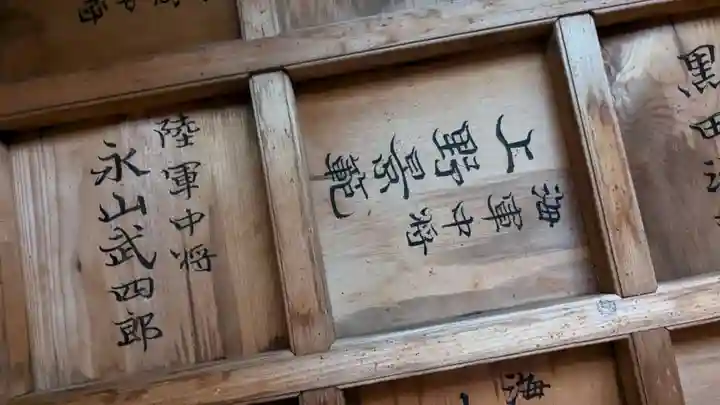 陸軍中将
永山武四郎
海軍中将
上野景範
黒田清
海